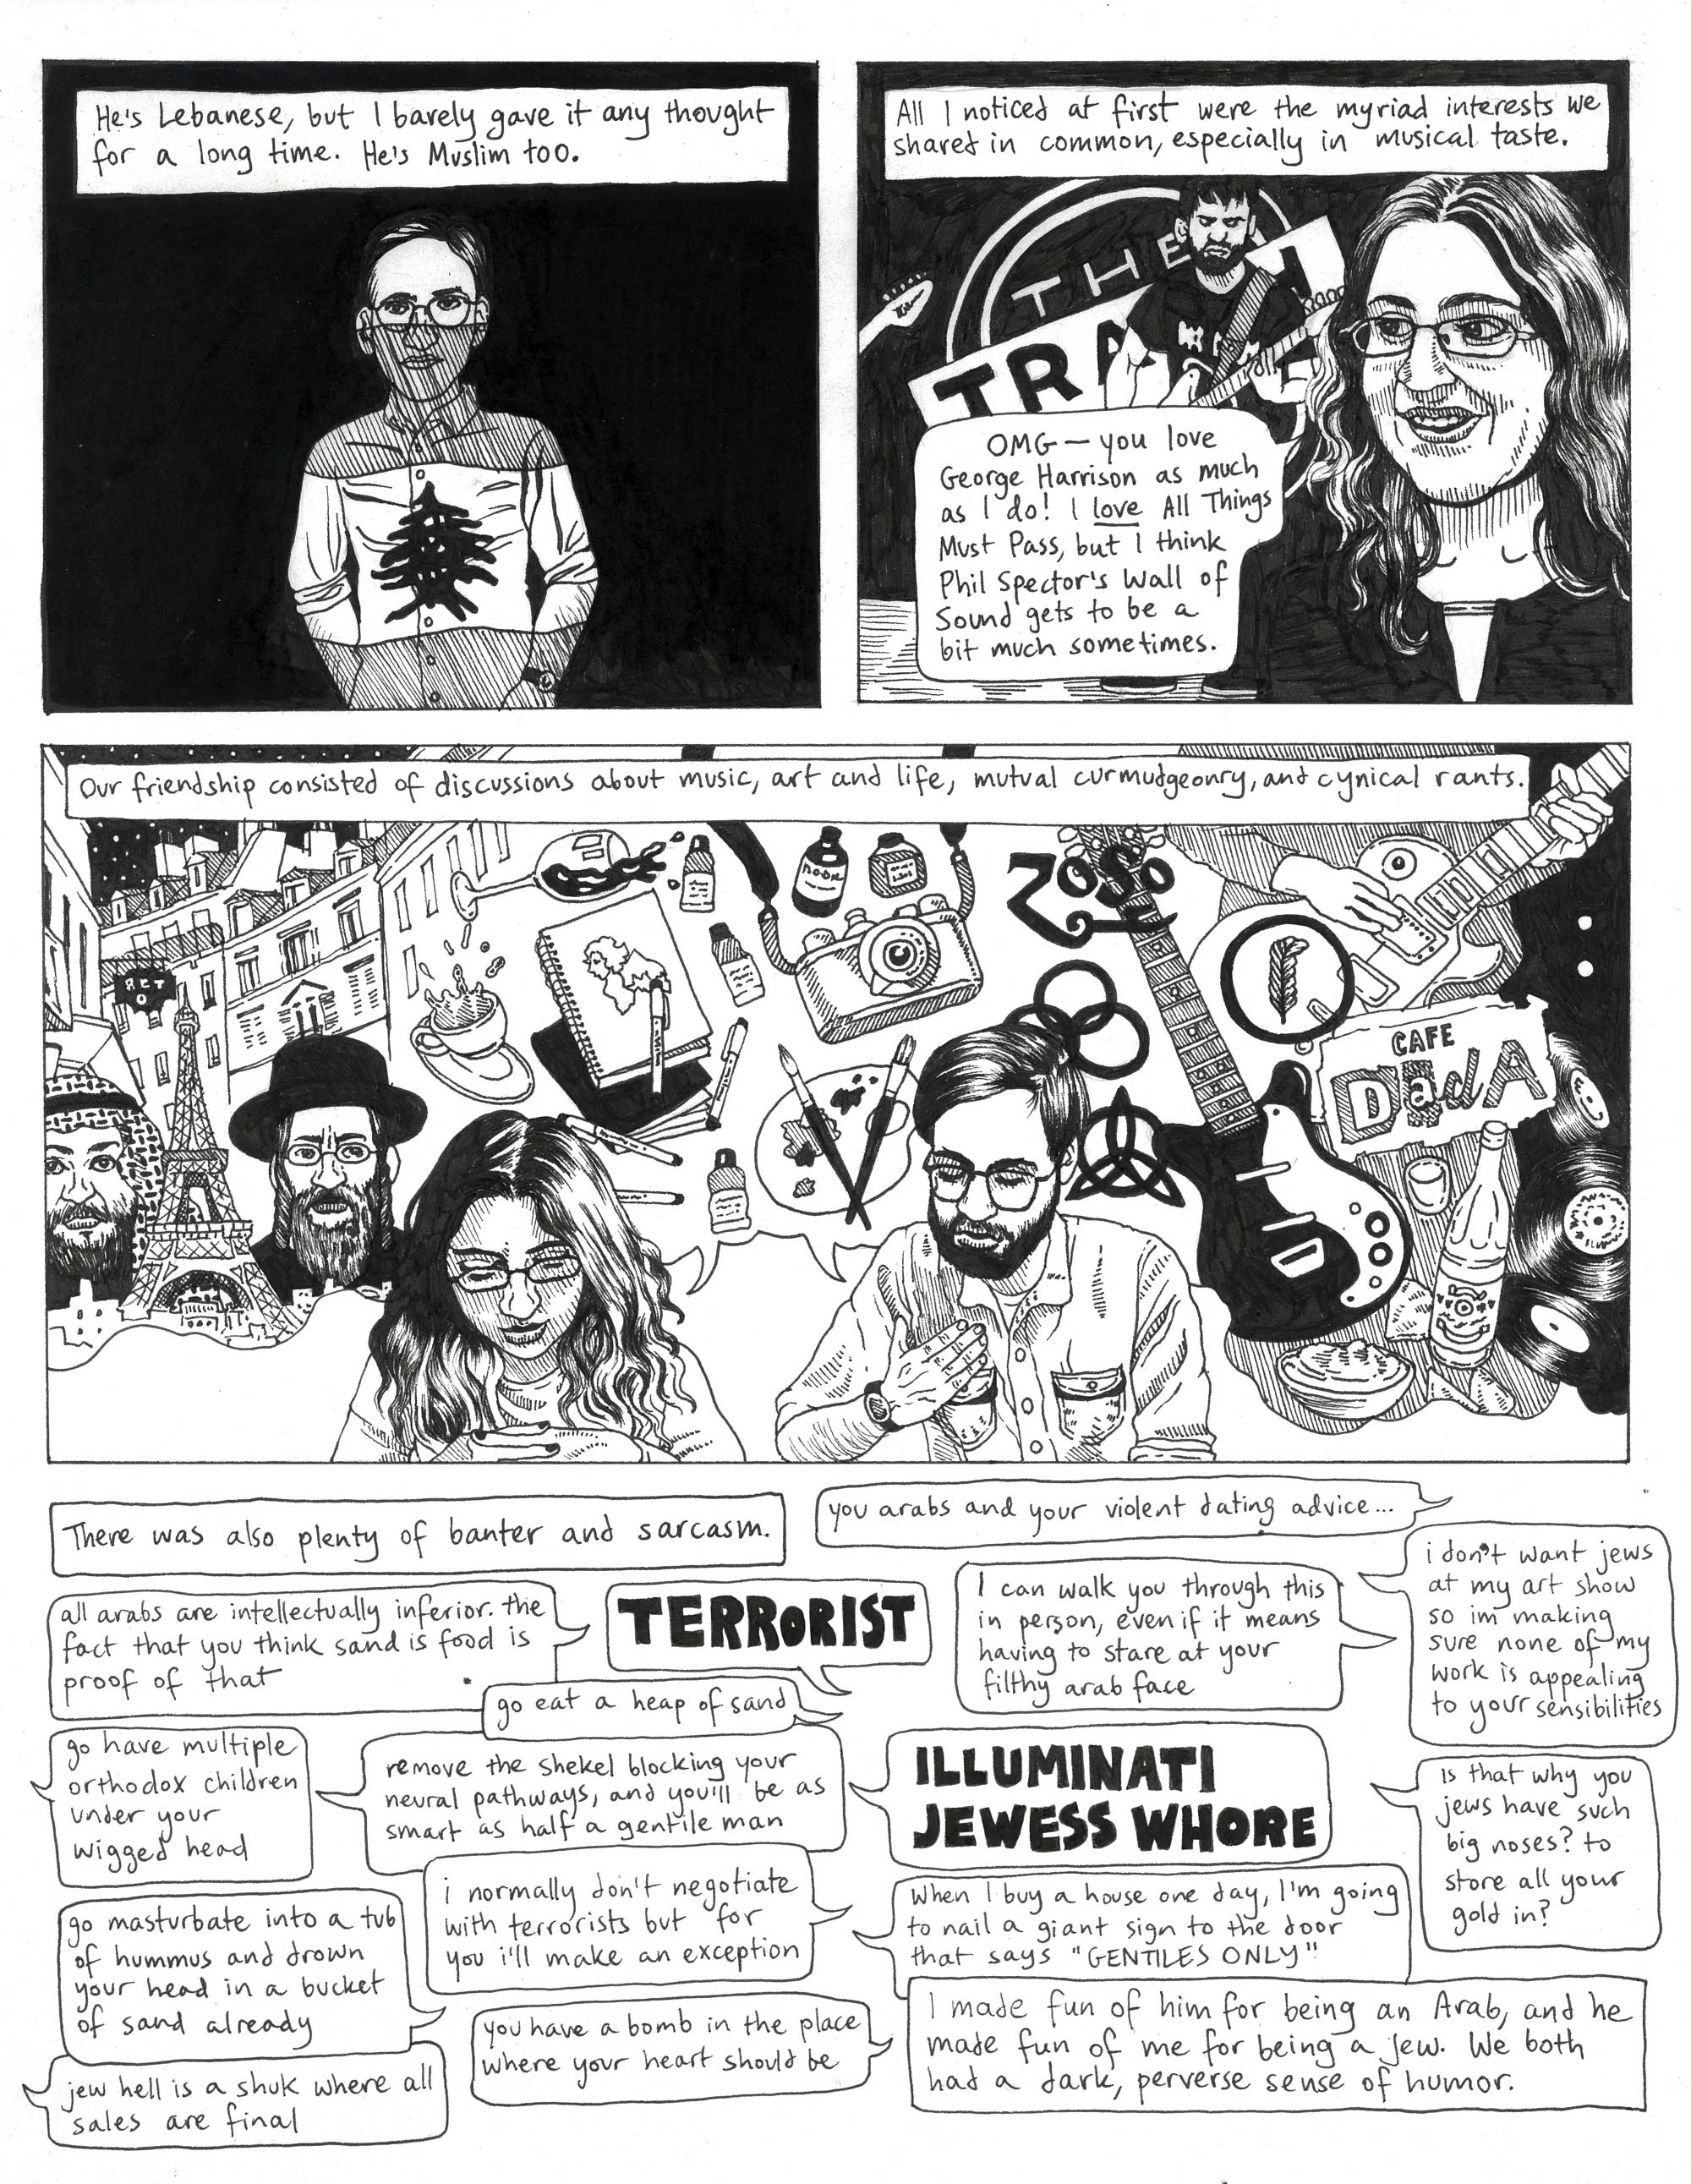 He's Lebanese, but I barely gave it any thought
for a long time. He's Muslim too.
All I noticed at first were the myriad interests we
shared in common, especially in musical taste.
THE
TRA
OMG — you love
George Harrison as much
as I do! I love All Things
Must Pass, but I think
Phil Spector's Wall of
Sound gets to be a
bit much sometimes.
Our friendship consisted of discussions about music, art and life, mutual curmudgeonry, and cynical rants.
ZOSO
CAFE
DadA
There was also plenty of banter and sarcasm.
you arabs and your violent dating advice...
i don't want jews
at my art show
so im making
sure none of my
work is appealing
to your sensibilities
all arabs are intellectually inferior. the
fact that you think sand is food is
proof of that
TERRORIST
I can walk you through this
in person, even if it means
having to stare at your
filthy arab face
go eat a heap of sand
go have multiple
orthodox children
under your
wigged head
remove the shekel blocking your
neural pathways, and you'll be as
smart as half a gentile man
ILLUMINATI
JEWESS WHORE
is that why you
jews have such
big noses? to
store all your
gold in?
i normally don't negotiate
with terrorists but for
you i'll make an exception
When I buy a house one day, I'm going
to nail a giant sign to the door
that says "GENTILES ONLY"
go masturbate into a tub
of hummus and drown
your head in a bucket
of sand already
you have a bomb in the place
where your heart should be
I made fun of him for being an Arab, and he
made fun of me for being a Jew. We both
had a dark, perverse sense of humor.
jew hell is a shuk where all
sales are final